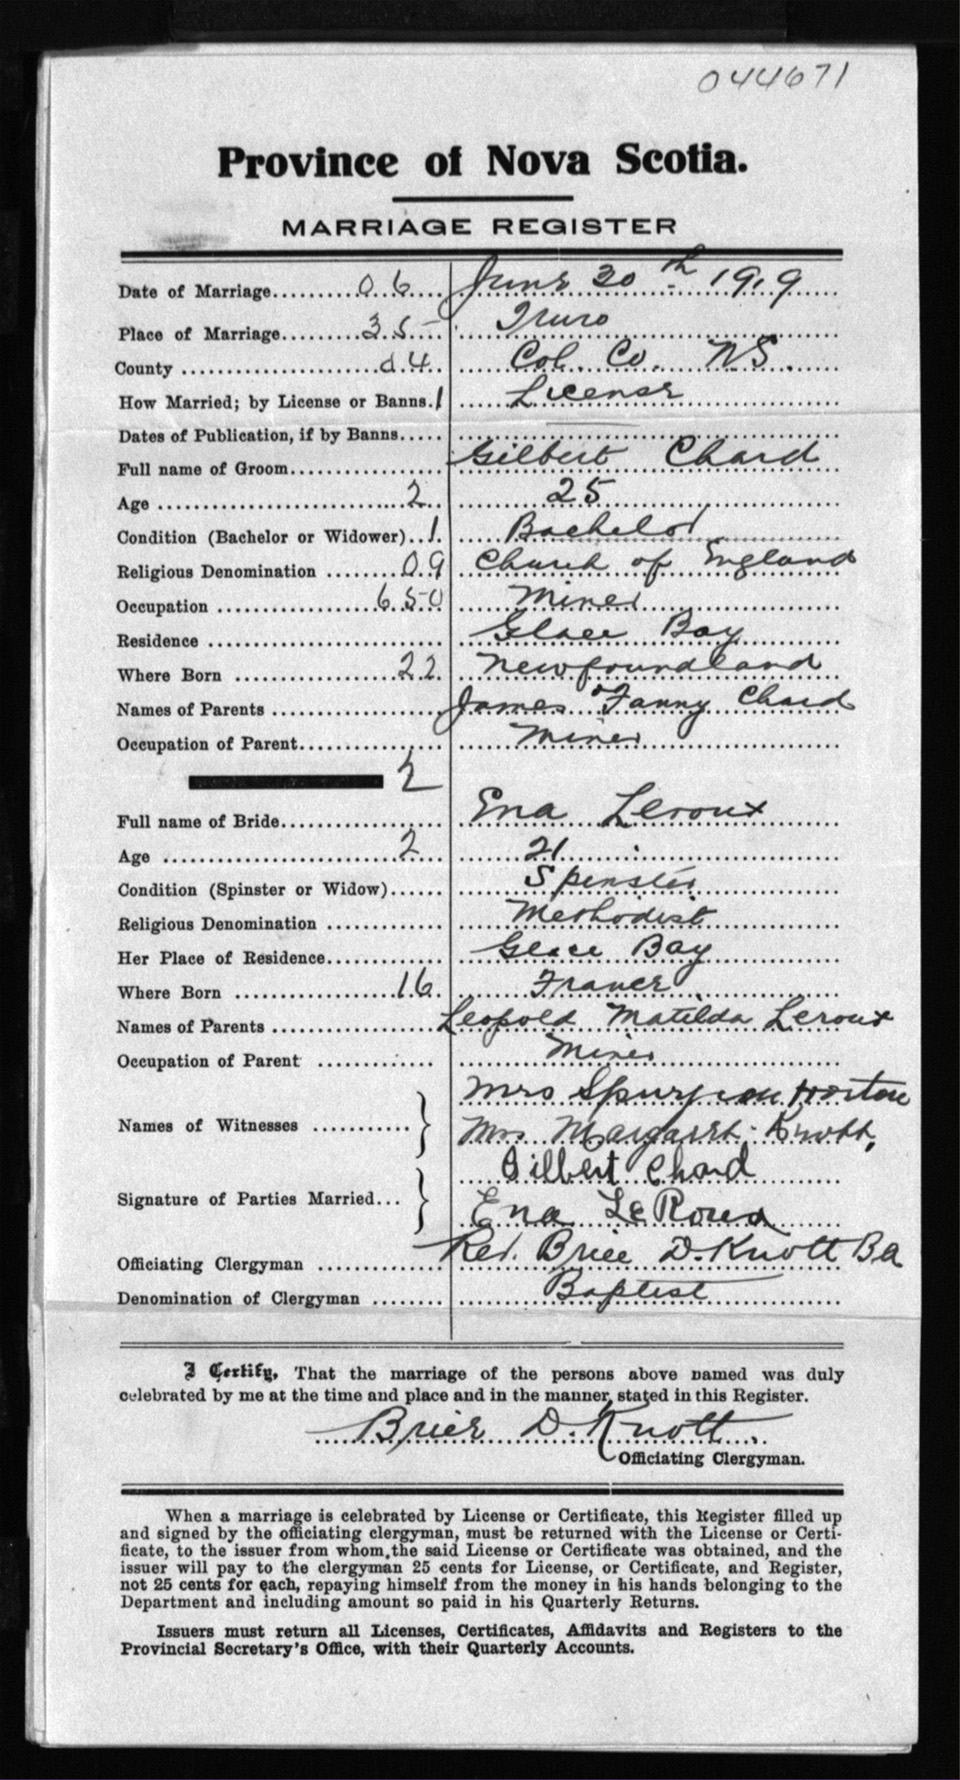 044671
Province of Nova Scotia.
MARRIAGE REGISTER
Date of Marriage..........06.... June 30th 1919
Place of Marriage.......35-.. Truro
County ....................04.. Col. Co. NS.
How Married; by License or Banns.1 License
Dates of Publication, if by Banns..... ———
Full name of Groom.................. Gilbert Chard
Age ..........................2... 25
Condition (Bachelor or Widower)..1. Bachelor
Religious Denomination .......09 Church of England
Occupation ................650 Miner
Residence ........................... Glace Bay
Where Born ................22. Newfoundland
Names of Parents .................. James & Fanny Chard
Occupation of Parent................ Miner
2
Full name of Bride.................. Ena Leroux
Age .........................2... 21
Condition (Spinster or Widow)...... Spinster
Religious Denomination ............. Methodist
Her Place of Residence............. Glace Bay
Where Born ................16. France
Names of Parents .................. Leopold Matilda Leroux
Occupation of Parent ............. Miner
Names of Witnesses ........... Mrs Spurgeon Horton
Mrs. Margaret Knott,
Signature of Parties Married... Gilbert Chard
Ena LeRoux
Officiating Clergyman ............. Rev. Brice D. Knott Ba
Denomination of Clergyman ........ Baptist
I Certify, That the marriage of the persons above named was duly
celebrated by me at the time and place and in the manner stated in this Register.
Brice D. Knott.
Officiating Clergyman.
When a marriage is celebrated by License or Certificate, this Register filled up
and signed by the officiating clergyman, must be returned with the License or Certi-
ficate, to the issuer from whom the said License or Certificate was obtained, and the
issuer will pay to the clergyman 25 cents for License, or Certificate, and Register,
not 25 cents for each, repaying himself from the money in his hands belonging to the
Department and including amount so paid in his Quarterly Returns.
Issuers must return all Licenses, Certificates, Affidavits and Registers to the
Provincial Secretary's Office, with their Quarterly Accounts.